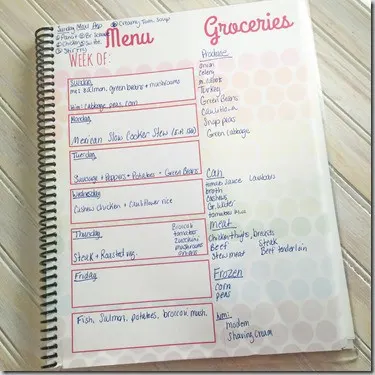 Sunday Meal Prep
Creamy Tom. Soup
Menu
Groceries
WEEK OF:
Produce
onion
celery
Turkey
Green Beans
Cauliflower
Snap peas
Green Cabbage
Sunday
me: salmon, green beans + mushrooms
Him: Cabbage, peas, corn
Monday
Mexican Slow Cooker Stew
Tuesday
Sausage + Peppers + Potatoes + Green Beans
Wednesday
Cashew chicken + Cauliflower rice
Thursday
Broccoli
tomatoes
zucchini
mushrooms
onions
Steak + Roasted veg.
Friday
Fish, Salmon, potatoes, broccoli, mush.
Can
tomato sauce
broth
cashews
meat
Chicken thighs, breasts
Beef
Steak
Stew meat
Beef tenderloin
Frozen
corn
peas
modem
Shaving Cream